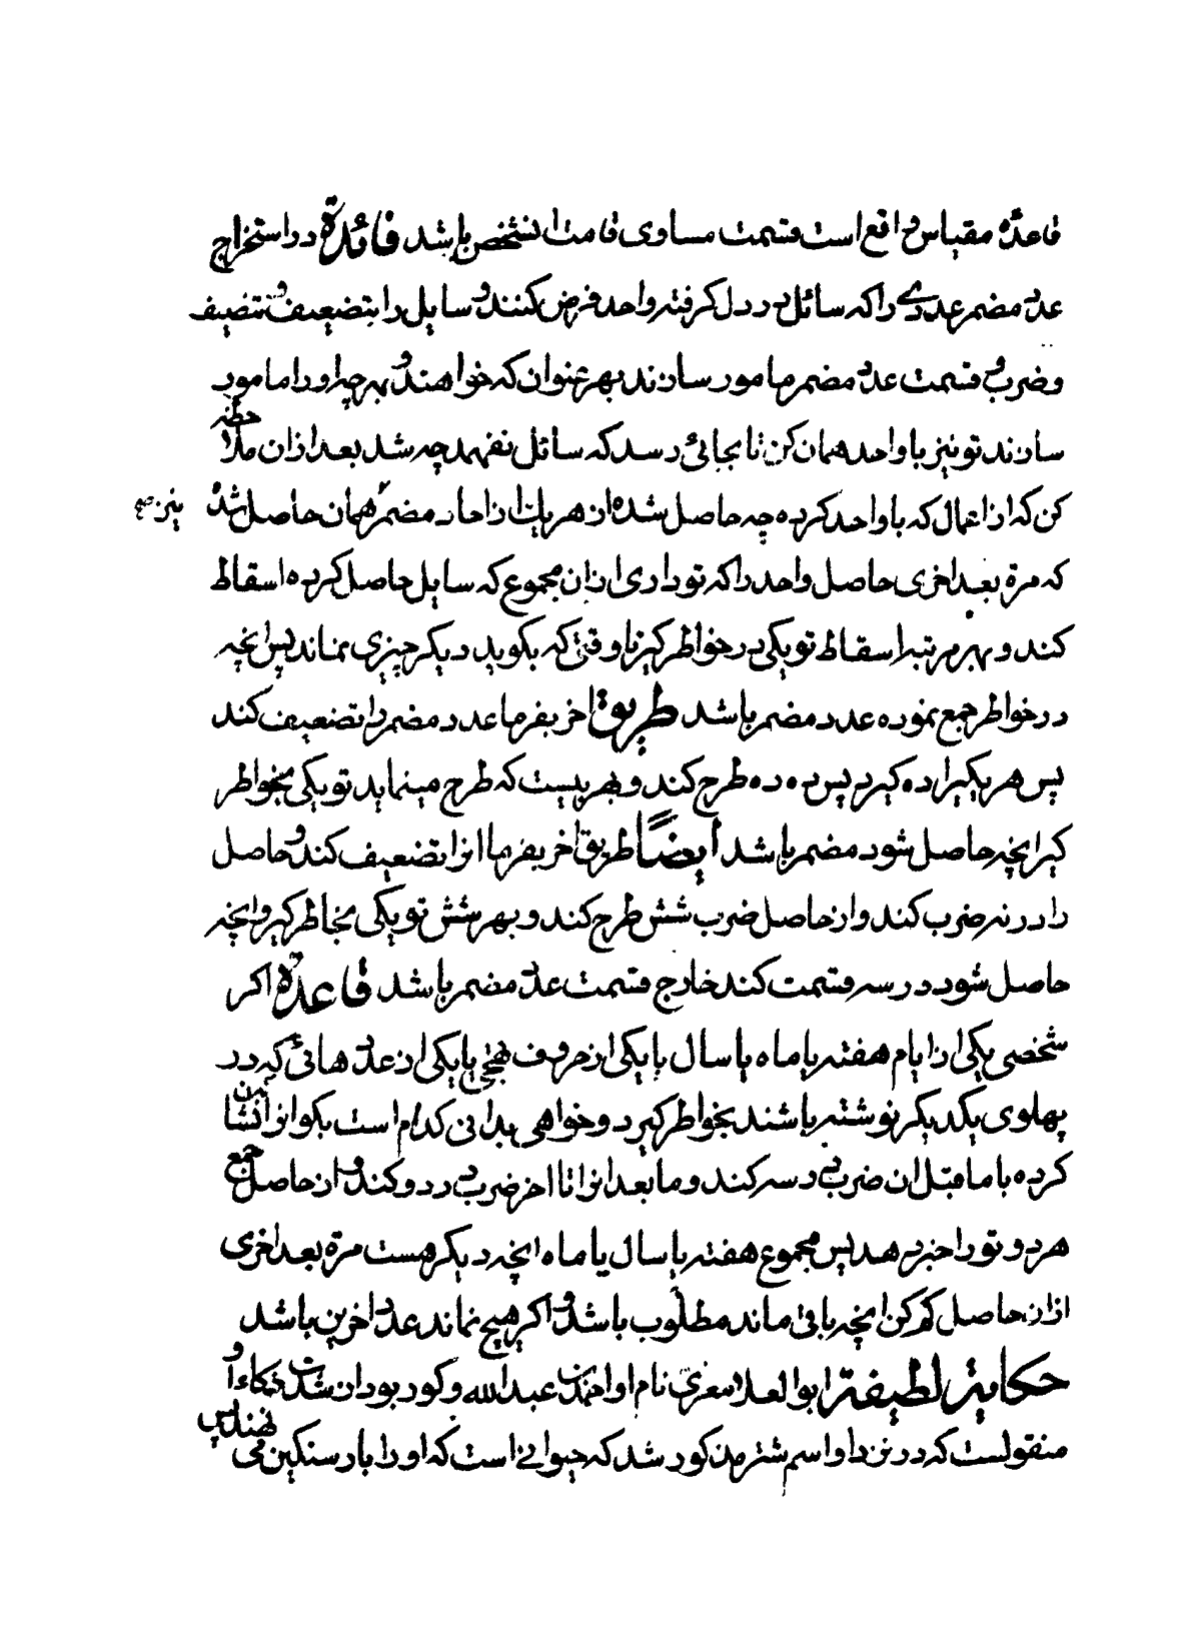 قاعدهٔ مقیاس واقع است قسمت مساوی قامت انشخص باشد فائدة در استخراج
عدد مضمر عددی را که سائل در دل کرفته واحد فرض کنند و سایل را بتضعیف و تنصیف
و ضرب و قسمت عدد مضمر مامور سازند بهر عنوان که خواهند و بهرچه او را مامور
سازند تو نیز با واحد همان کن تا بجائی رسد که سائل نفهمد چه شد بعد ازان ملاحظه
کن که از اعمال که با واحد کرده چه حاصل شده از هر یک از احاد مضمر همان حاصل شده نیز صح
که مرة بعد اخری حاصل واحد را که تو داری ازان مجموع که سایل حاصل کرده اسقاط
کند و بهر مرتبه اسقاط تو یکی در خواطر کیر تا وقتی که بکوید دیکر چیزی نماند پس انچه
در خواطر جمع نموده عدد مضمر باشد طریق اخر بفرما عدد مضمر را تضعیف کند
پس هر یکیرا ده کیرد پس ده ده طرح کند و بهر بیست که طرح مینماید تو یکی بخواطر
کیر انچه حاصل شود مضمر باشد ایضًا طریق اخر بفرما انرا تضعیف کند و حاصل
را در نه ضرب کند و از حاصل ضرب شش طرح کند و بهر شش تو یکی بخاطر کیر و انچه
حاصل شود در سه قسمت کند خارج قسمت عدد مضمر باشد قاعدة اکر
شخصی یکی از ایام هفته یا ماه یا سال یا یکی از حروف تهجی یا یکی از عدد هائی که در
پهلوی یکدیکر نوشته باشند بخواطر کیرد و خواهی بدانی کدام است بکو انرا نشان
کرده با ماقبل ان ضرب در سه کند و مابعد انرا تا اخر ضرب در دو کند و از حاصل جمع
هر دو تو را خبر دهد پس مجموع هفته یا سال یا ماه انچه دیکر هست مرة بعد اخری
ازان حاصل کم کن انچه باقی ماند مطلوب باشد و اکر هیچ نماند عدد اخرین باشد
حکایة لطیفة ابو العلاء معری نام او احمد بن عبدالله و کور بود از شدت ذکاء او
منقولست که در نزد او اسم شتر مذکور شد که حیوانی است که او را بار سنکین می نهند پس